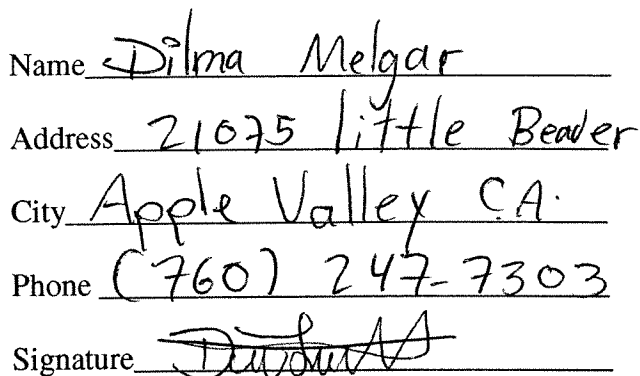 Name Dilma Melgar
Address 21075 little Beader
City Apple Valley CA.
Phone (760) 247-7303
Signature